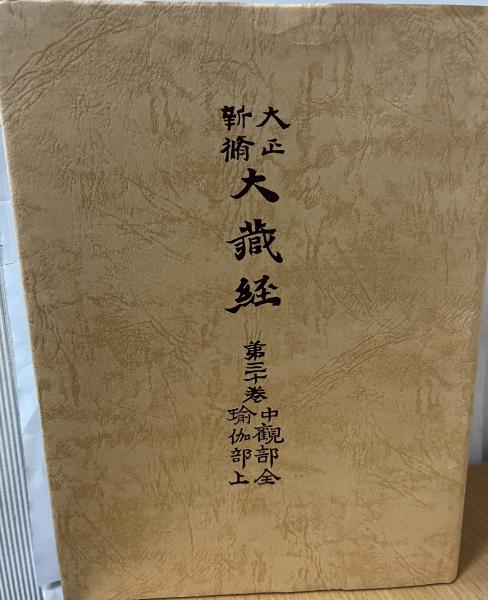 大正
新脩
大藏経
第三十卷
中觀部全
瑜伽部上